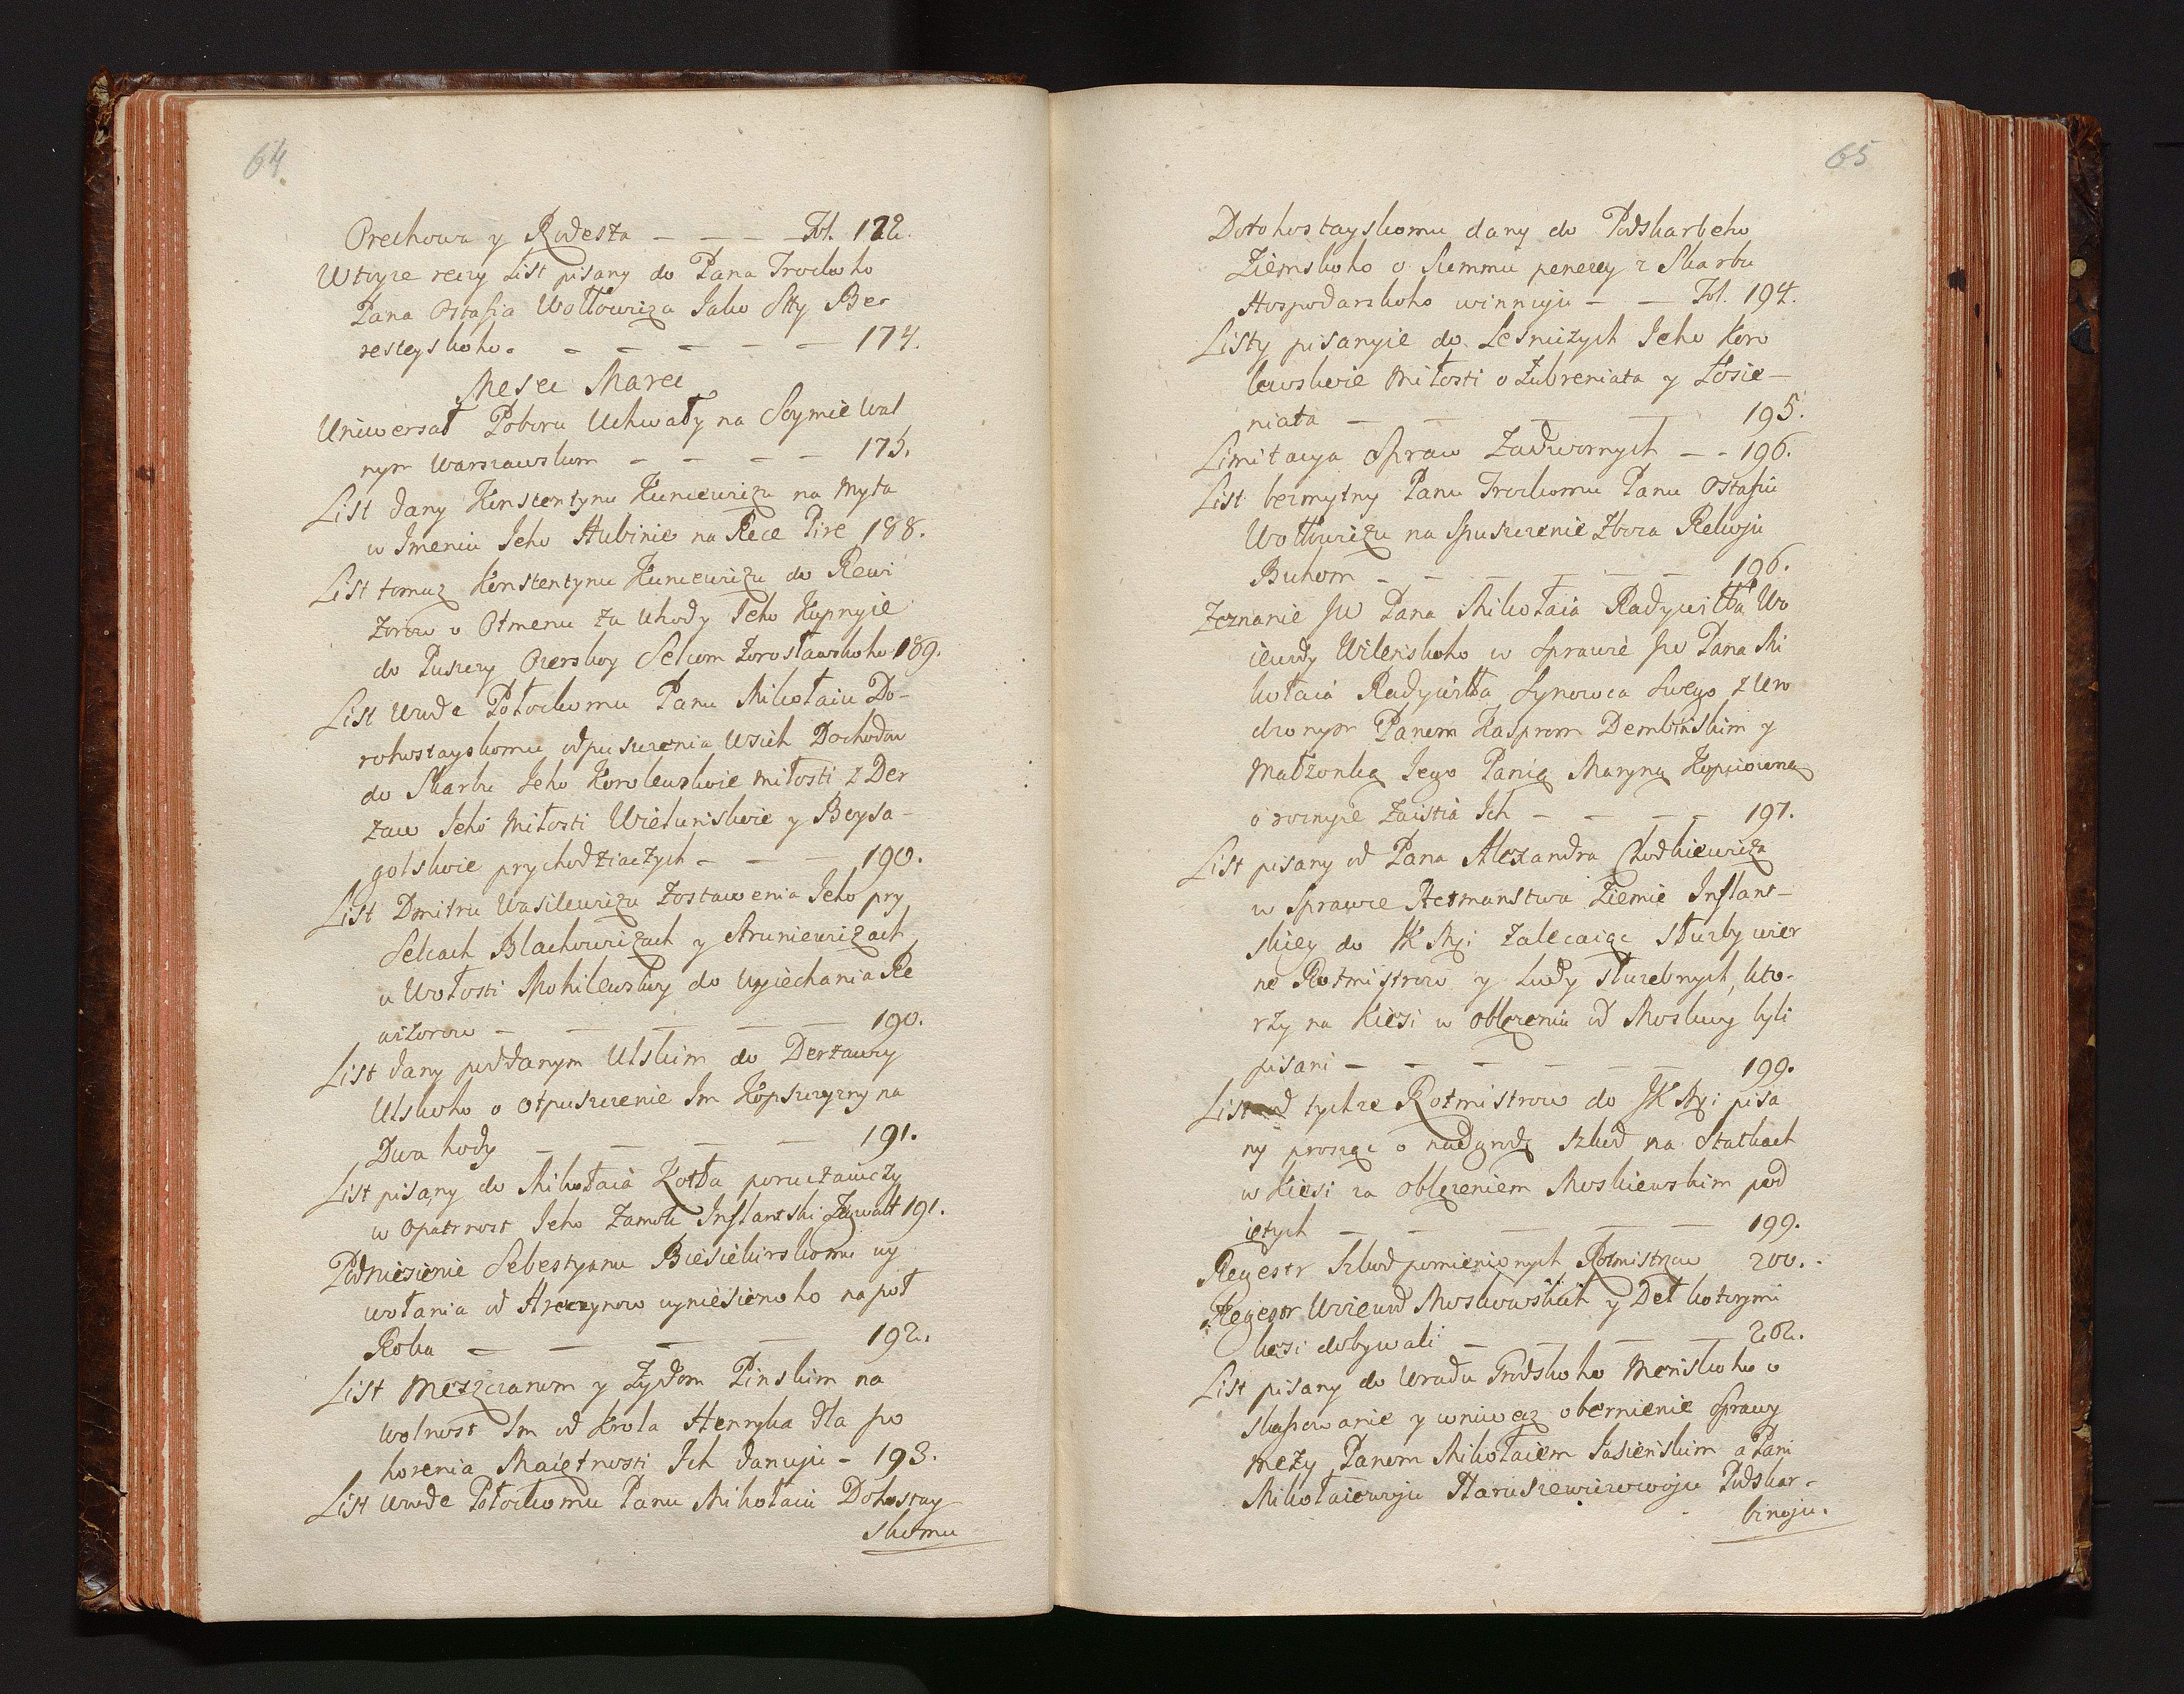 64
Orechowa y Rodesta — — — — Fol. 172.
W toyze reczy List pisany do Pana Trockoho
Pana Ostafia Wołłowicza Jako Stty Be-
resteyskoho. — — — — — 174.
Mesec Marec
Uniwersał Poboru Uchwały na Soymie Wal
nym Warszawskom — — — — 175.
List dany Konstentynu Kuncewiczu na Myta
w Imeniu Jeho Hubinie na Rece Pire 188.
List tomuz Konstentynu Kuncewiczu do Rewi
zorow o Otmenu za Uhody Jeho Kupnyie
do Puszczy Ozerskoy Sełcom Zorosławskoho 189.
List Wwde Połockomu Panu Mikołaiu Do-
rohostayskomu odpuszczenia Wsich Dochodow
do Skarbu Jeho Korolewskoie miłosti z Der
zaw Jeho Miłosti Wieluńskoie y Beysa-
golskoie prychodziaczych — — — 190.
List Dmitru Wasilewiczu Zostawenia Jeho pry
Selcach Blachowiczach y Aruniewiczach
u Wołosti Mohilewskoy do wyiechania Re
wizorow — — — — — 190.
List dany poddanym Ulskim do Derzawy
Ulskoho o Otpuszczenie Im Kopszczyzny na
Dwa hody — — — — 191.
List pisany do Mikołaia Kotła poruczaiuczy
w Opatrnost Jeho Zamok Inflantski Zegwalt 191.
Podniesienie Sebestyanu Biesiekirskomu wy
wołania od Hreczynow wyniesienoho na poł
Roku — — — — 192.
List Meszczanom y Zydom Pinskim na
wolnost Im od Krola Henryka dla po
horenia Maiętnosti Ich danuju — 193.
List Wwde Połockomu Panu Mikołaiu Dohostay
skomu
65
Dorohostayskomu dany do Podskarbeho
Ziemskoho o Summu penezey z Skarbu
Hospodarskoho winnuju — — Fol. 194.
Listy pisanyie do Lesniczych Jeho Koro
lewskoie Miłosti o Zubreniata y Łosie-
niata — — — — 195.
Limitacya Spraw Zadwornych — — 196.
List bezmytny Panu Trockomu Panu Ostafiu
Wołłowiczu na Spuszczenie Zboza Rekoju
Buhom — — — — — 196.
Zeznanie Jw Pana Mikołaia Radywiłła Wo
iewdy Wilenskoho w Sprawie Jw Pana Mi
kołaia Radywiłła Synowca Swego z Uro
dzonym Panem Kasprom Dembińskim y
Małzonką Jego Panią Maryną Kopciowną
o rocznyie zaistia Ich — — — — 197.
List pisany od Pana Alexandra Chodkiewicza
w Sprawie Hetmanstwa Ziemie Inflant-
skiey do JK Mci Zalecaiąc Słuzby wier
ne Rotmistrow y Ludzy słuzebnych, kto-
rzy na Kiesi w oblęzeniu od Moskwy byli
pisani — — — — — — 199.
List od tychze Rotmistrow do JK Mci pisa
ny prosząc o nadgrodę Szkod na Statkach
w Kiesi za oblęzeniem Moskiewskim pod
iętych — — — — — 199.
Regestr Szkod pomienionych Rotmistrzow 200.
Regestr Woiewod Moskowskich y Deł kotorymi
kiesi dobywali — — — — 202.
List pisany do Uradu Grodskoho Menskoho o
skasowanie y wniwecz obernienie Sprawy
mezy Panom Mikołaiem Jasieńskim a Pani
Mikołaiewoju Naruszewiczowoju Podskar-
binoju.